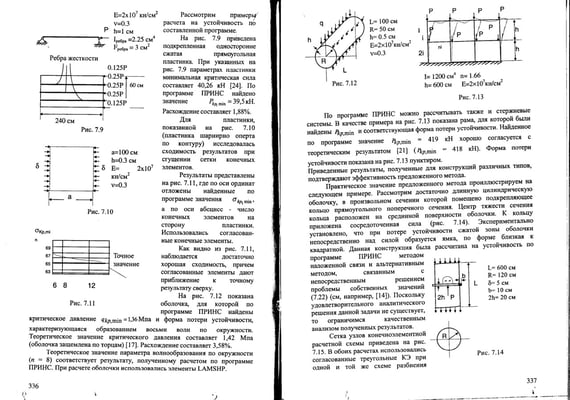 E=2x10⁷ кн/см²
ν=0.3
P h=1 см
Jребра =2.25 см⁴
Fребра = 3 см²
Ребра жесткости
0.125P
0.25P
0.25P
0.25P
0.125P
60 см
240 см
Рис. 7.9
Рассмотрим примеры
расчета на устойчивость по
составленной программе.
На рис. 7.9 приведена
подкрепленная односторонне
сжатая прямоугольная
пластина. При указанных на
рис. 7.9 параметрах пластины
минимальная критическая сила
составляет 40,26 кН [24]. По
программе ПРИНС найдено
значение Pкр,min = 39,5 кН.
Расхождение составляет 1,88%.
Для пластины,
показанной на рис. 7.10
(пластина шарнирно оперта
по контуру) исследовалась
сходимость результатов при
сгущении сетки конечных
элементов.
Результаты представлены
на рис. 7.11, где по оси ординат
отложены найденные по
программе значения σкр,min,
а по оси абсцисс - число
конечных элементов на
сторону пластины.
Использовались согласован-
ные конечные элементы.
Как видно из рис. 7.11,
наблюдается достаточно
хорошая сходимость, причем
согласованные элементы дают
приближение к точному
результату сверху.
На рис. 7.12 показана
оболочка, для которой по
программе ПРИНС найдены
δ
δ
a=100 см
h=0.3 см
E= 2x10⁷
кн/см²
ν=0.3
a
Рис. 7.10
σкр,mi
n
69
67
65
63
Точное
значение
6 8 12
Рис. 7.11
критическое давление qкр,min =1,36 Мпа и форма потери устойчивости,
характеризующаяся образованием восьми волн по окружности.
Теоретическое значение критического давления составляет 1,42 Мпа
(оболочка защемлена по торцам) [17]. Расхождение составляет 3,58%.
Теоретическое значение параметра волнообразования по окружности
(n = 8) соответствует результату, полученному расчетом по программе
ПРИНС. При расчете оболочки использовались элементы LAMSHP.
336
q
h
R
L
L= 100 см
R= 50 см
h= 0.5 см
E=2x10⁷ кн/см²
ν=0.3
Рис. 7.12
i
2i
h
h
I= 1200 см⁴ n= 1.66
h= 600 см E=2x10⁷кн/см²
Рис. 7.13
По программе ПРИНС можно рассчитывать также и стержневые
системы. В качестве примера на рис. 7.13 показана рама, для которой были
найдены Pкр,min и соответствующая форма потери устойчивости. Найденное
по программе значение Pкр,min = 419 кН хорошо согласуется с
теоретическим результатом [21] (Pкр,min = 418 кН). Форма потери
устойчивости показана на рис. 7.13 пунктиром.
Приведенные результаты, полученные для конструкций различных типов,
подтверждают эффективность предложенного метода.
Практическое значение предложенного метода проиллюстрируем на
следующем примере. Рассмотрим достаточно длинную цилиндрическую
оболочку, в произвольном сечении которой помещено подкрепляющее
кольцо прямоугольного поперечного сечения. Центр тяжести сечения
кольца расположен на срединной поверхности оболочки. К кольцу
приложена сосредоточенная сила (рис. 7.14). Экспериментально
установлено, что при потере устойчивости сжатой зоны оболочки
непосредственно над силой образуется ямка, по форме близкая к
квадратной. Данная конструкция была рассчитана на устойчивость по
программе ПРИНС методом
наложенной связи и альтернативным
методом, связанным с
непосредственным решением
проблемы собственных значений
(7.22) (см, например, [14]). Поскольку
удовлетворительного аналитического
решения данной задачи не существует,
то ограничимся качественным
анализом полученных результатов.
Сетка узлов конечноэлементной
расчетной схемы приведена на рис.
7.15. В обоих расчетах использовались
согласованные треугольные КЭ при
одной и той же схеме разбиения
2h
P
L
R
L= 600 см
R= 120 см
δ= 5 см
b= 10 см
2h= 20 см
Рис. 7.14
337